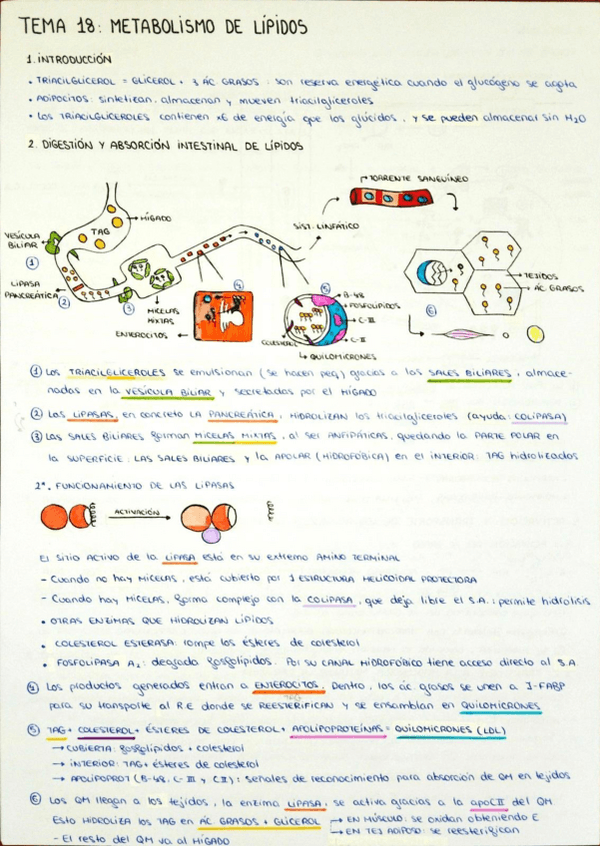 TEMA 18: METABOLISMO DE LÍPIDOS
1. INTRODUCCIÓN
• TRIACILGLICEROL = GLICEROL + 3 ÁC. GRASOS : son reserva energética cuando el glucógeno se agota
• ADIPOCITOS: sintetizan, almacenan y mueven triacilgliceroles
• LOS TRIACILGLICEROLES contienen xE de energía que los glúcidos, y se pueden almacenar sin H2O
2. DIGESTIÓN Y ABSORCIÓN INTESTINAL DE LÍPIDOS
TORRENTE SANGUÍNEO
HÍGADO
TAG
VESÍCULA BILIAR
SIST. LINFÁTICO
1
LIPASA PANCREÁTICA
2
3
MICELAS MIXTAS
ENTEROCITOS
4
5
B-48
FOSFOLÍPIDOS
C-III
C-II
COLESTEROL
QUILOMICRONES
TEJIDOS
ÁC. GRASOS
6
① Los TRIACILGLICEROLES se emulsionan (se hacen peq) gracias a las SALES BILIARES, almace-
nadas en la VESÍCULA BILIAR y secretadas por el HÍGADO
② Las LIPASAS, en concreto LA PANCREÁTICA, HIDROLIZAN los triacilgliceroles (ayuda: COLIPASA)
③ LAS SALES BILIARES forman MICELAS MIXTAS, al ser ANFIPÁTICAS, quedando la PARTE POLAR en
la SUPERFICIE: LAS SALES BILIARES y la APOLAR (HIDROFÓBICA) en el INTERIOR: TAG hidrolizados
2ª. FUNCIONAMIENTO DE LAS LIPASAS
ACTIVACIÓN
El SITIO ACTIVO de la LIPASA está en su extremo AMINO TERMINAL
- Cuando no hay MICELAS, está cubierto por 1 ESTRUCTURA HELICOIDAL PROTECTORA
- Cuando hay MICELAS, forma complejo con la COLIPASA, que deja libre el S.A.: permite hidrólisis
• OTRAS ENZIMAS QUE HIDROLIZAN LÍPIDOS
• COLESTEROL ESTERASA: rompe los ésteres de colesterol
• FOSFOLIPASA A2: degrada fosfolípidos. Por su CANAL HIDROFÓBICO tiene acceso directo al S.A.
④ Los productos generados entran a ENTEROCITOS. Dentro, los ác. grasos se unen a I-FABP
para su transporte al R.E donde se REESTERIFICAN y se ensamblan en QUILOMICRONES
⑤ TAG + COLESTEROL + ÉSTERES DE COLESTEROL + APOLIPOPROTEÍNAS = QUILOMICRONES (LDL)
→ CUBIERTA: fosfolípidos + colesterol
→ INTERIOR: TAG + ésteres de colesterol
→ APOLIPOPROT (B-48, C-III y CII): señales de reconocimiento para absorción de QM en tejidos
⑥ Los QM llegan a los tejidos, la enzima LIPASA, se activa gracias a la apoCII del QM
Esto HIDROLIZA los TAG en ÁC GRASOS + GLICEROL → EN MÚSCULO: se oxidan obteniendo E
→ EN TEJ ADIPOSO: se reesterifican
- El resto del QM va al HÍGADO